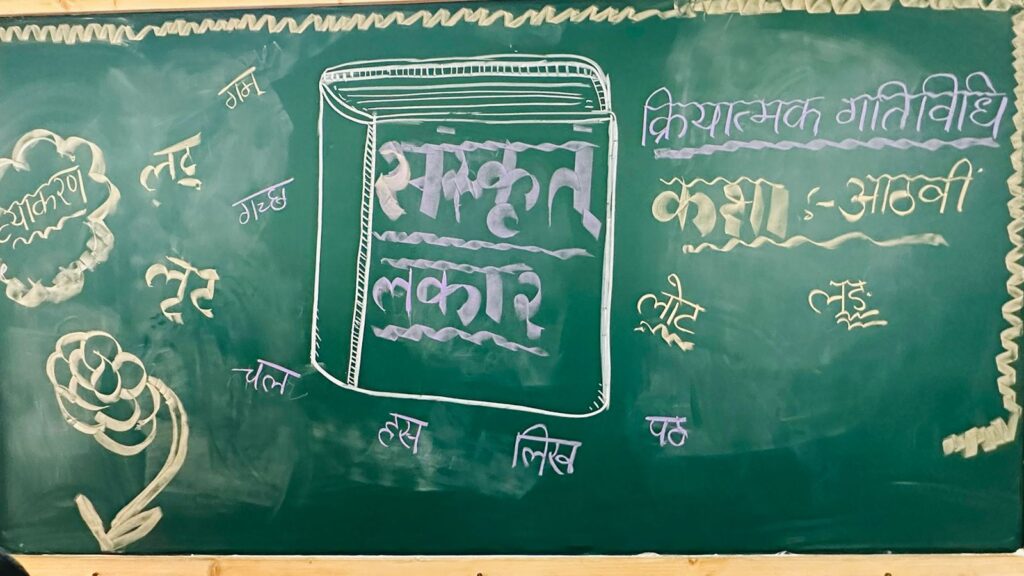 गम्
व्याकरण
लट्
गच्छ
लृट
चल
संस्कृत्
लकार
हस
लिख
क्रियात्मक गतिविधि
कक्षा :- आठवीं
लोट
लङ्
पठ